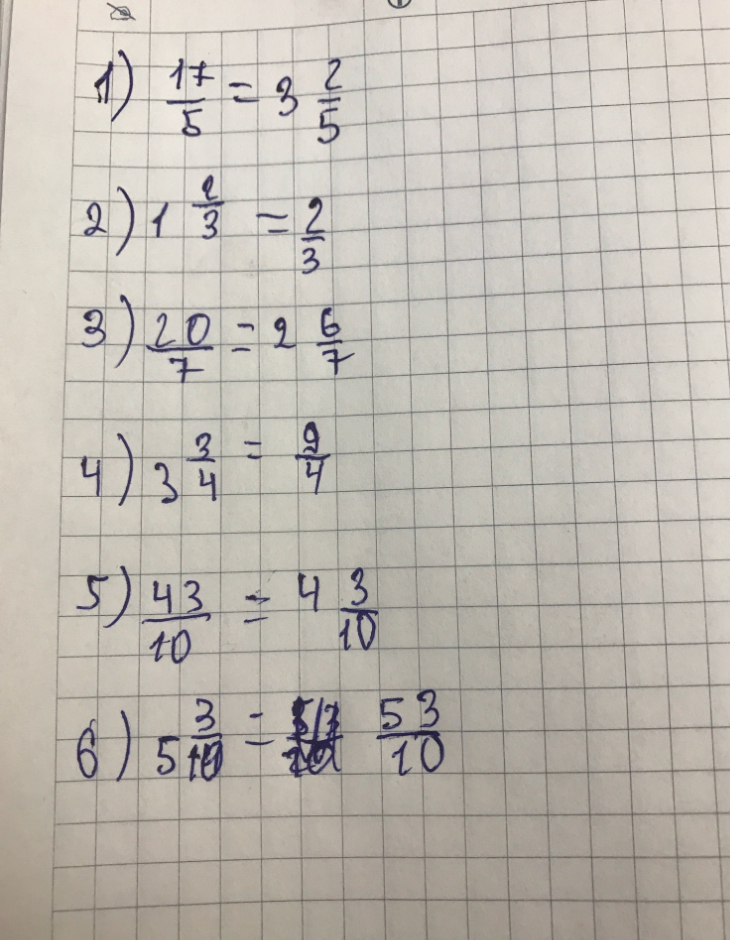 1) 17/5 = 3 2/5
2) 1 2/3 = 2/3
3) 20/7 = 2 6/7
4) 3 3/4 = 9/4
5) 43/10 = 4 3/10
6) 5 3/10 = 53/10